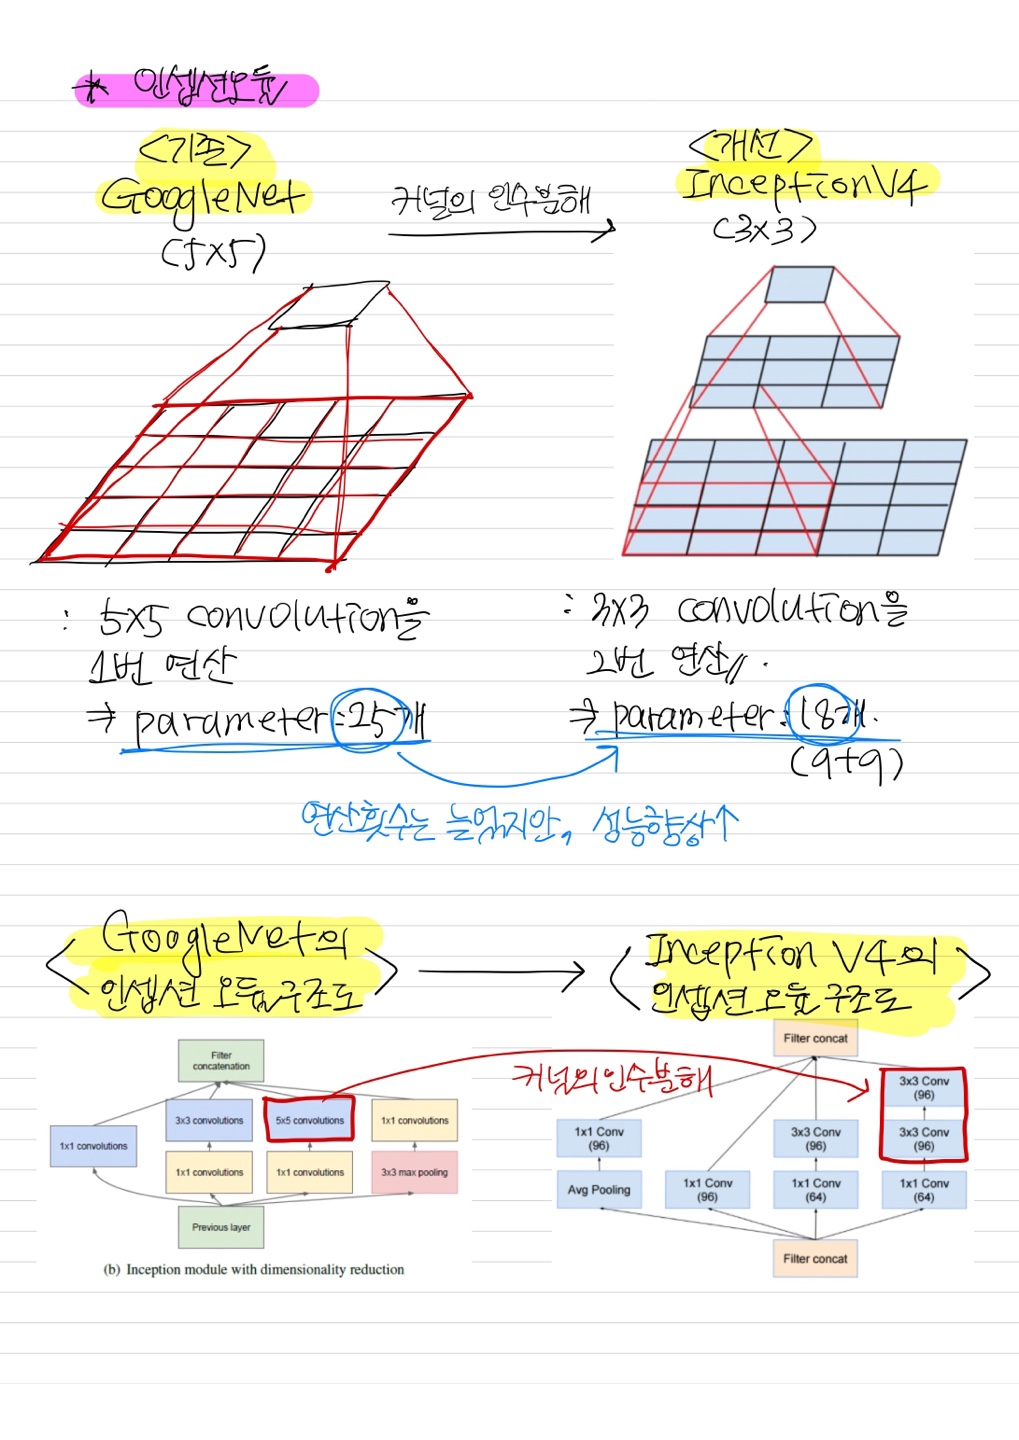 * 인셉션모듈
<기존>
GoogleNet
(5x5)
커널의 인수분해
<개선>
InceptionV4
(3x3)
: 5x5 convolution을
1번 연산
⇒ parameter:25개
: 3x3 convolution을
2번 연산//.
⇒ parameter:18개.
(9+9)
연산횟수는 늘었지만, 성능향상↑
<GoogleNet의
인셉션 모듈구조도>
<Inception V4의
인셉션모듈 구조도>
Filter
concatenation
3x3 convolutions
5x5 convolutions
1x1 convolutions
1x1 convolutions
1x1 convolutions
1x1 convolutions
3x3 max pooling
Previous layer
(b) Inception module with dimensionality reduction
커널의인수분해
Filter concat
3x3 Conv
(96)
1x1 Conv
(96)
3x3 Conv
(96)
3x3 Conv
(96)
Avg Pooling
1x1 Conv
(96)
1x1 Conv
(64)
1x1 Conv
(64)
Filter concat